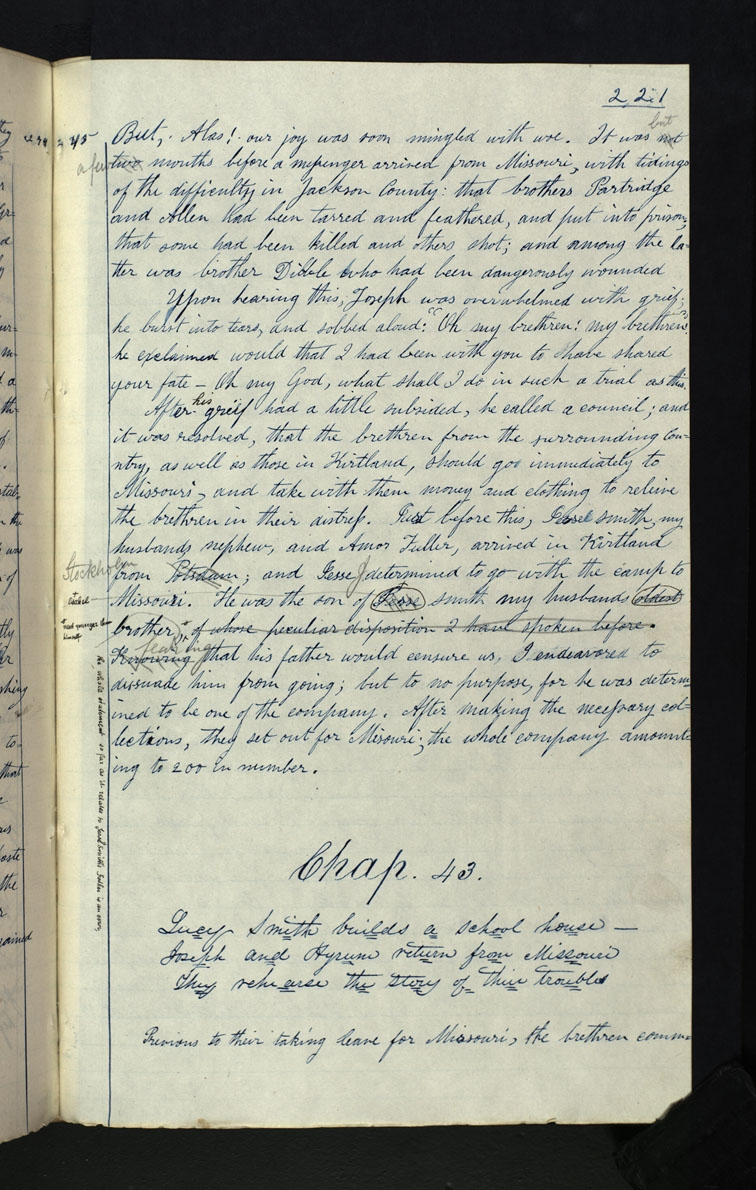 2,2.1
But, Alas! our joy was soon mingled with woe. It was not but
two a few months before a messenger arrived from Missouri, with tidings
of the difficulty in Jackson County: that brothers Partridge
and Allen had been tarred and feathered, and put into prison;
that some had been killed and others shot; and among the lat-
ter was brother Dibble who had been dangerously wounded
Upon hearing this, Joseph was overwhelmed with grief;
he burst into tears, and sobbed aloud: "Oh my brethren! my brethren"
he exclaimed would that I had been with you to have shared
your fate — Oh my God, what shall I do in such a trial as this.
After his grief had a little subsided, he called a council; and
it was resolved, that the brethren from the surrounding Cou-
ntry, as well as those in Kirtland, should goo immediately to
Missouri, and take with them money and clothing to relieve
the brethren in their distress. Just before this, Jesse smith, my
husbands nephew, and Amos Fuller, arrived in Kirtland
from Potsdam Stockholm; and Jesse determined to go with the camp to
Missouri. He was the son of Jesse smith my husbands oldest
brother, of whose peculiar disposition I have spoken before.
Knowing fearing that his father would censure us, I endeavored to
dissuade him from going; but to no purpose, for he was determ
ined to be one of the company. After making the necessary col-
lections, they set out for Missouri; the whole company amount-
ing to 200 in number.
the whole statement so far as it relates to Jesse Smith's father is an error
Chap. 43.
Lucy Smith builds a school house —
Joseph and Hyrum return from Missouri
They rehearse the story of their troubles
Previous to their taking leave for Missouri, the brethren comm-